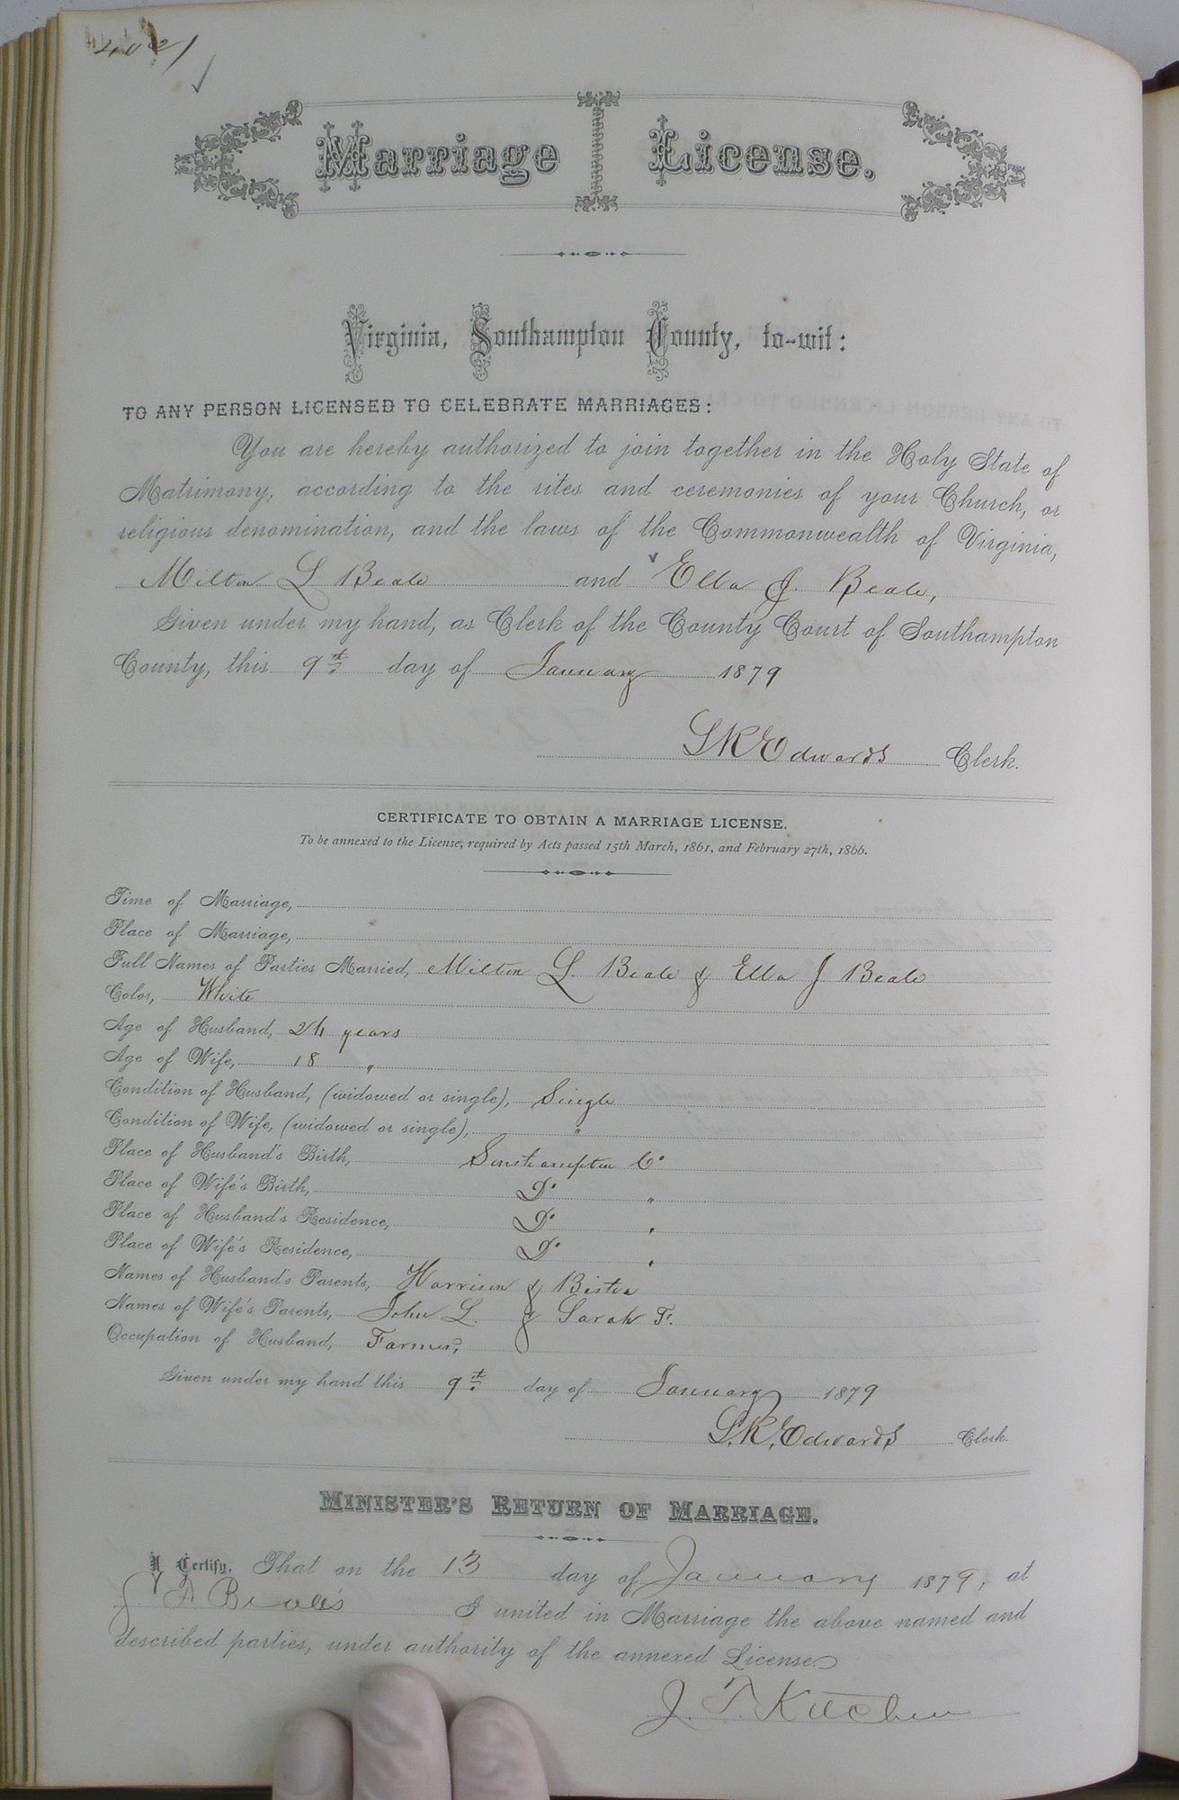 Marriage License.
Virginia, Southampton County, to-wit:
TO ANY PERSON LICENSED TO CELEBRATE MARRIAGES:
You are hereby authorized to join together in the Holy State of
Matrimony, according to the rites and ceremonies of your Church, or
religious denomination, and the laws of the Commonwealth of Virginia,
Milton L Beale and Ella J. Beale,
Given under my hand, as Clerk of the County Court of Southampton
County, this 9th day of January 1879
L R Edwards Clerk.
CERTIFICATE TO OBTAIN A MARRIAGE LICENSE.
To be annexed to the License, required by Acts passed 15th March, 1861, and February 27th, 1866.
Time of Marriage,
Place of Marriage,
Full Names of Parties Married, Milton L. Beale & Ella J Beale
Color, White
Age of Husband, 24 years
Age of Wife, 18 "
Condition of Husband, (widowed or single), Single
Condition of Wife, (widowed or single), "
Place of Husband's Birth, Southampton Co
Place of Wife's Birth, Do "
Place of Husband's Residence, Do "
Place of Wife's Residence, Do "
Names of Husband's Parents, Harrison &
Names of Wife's Parents, John L. & Sarah F.
Occupation of Husband, Farmer,
Given under my hand this 9th day of January 1879
L. R. Edwards Clerk.
MINISTER'S RETURN OF MARRIAGE.
I Certify, That on the 13 day of January 1879, at
Beale's I united in Marriage the above named and
described parties, under authority of the annexed License.
J. T. Kitchen